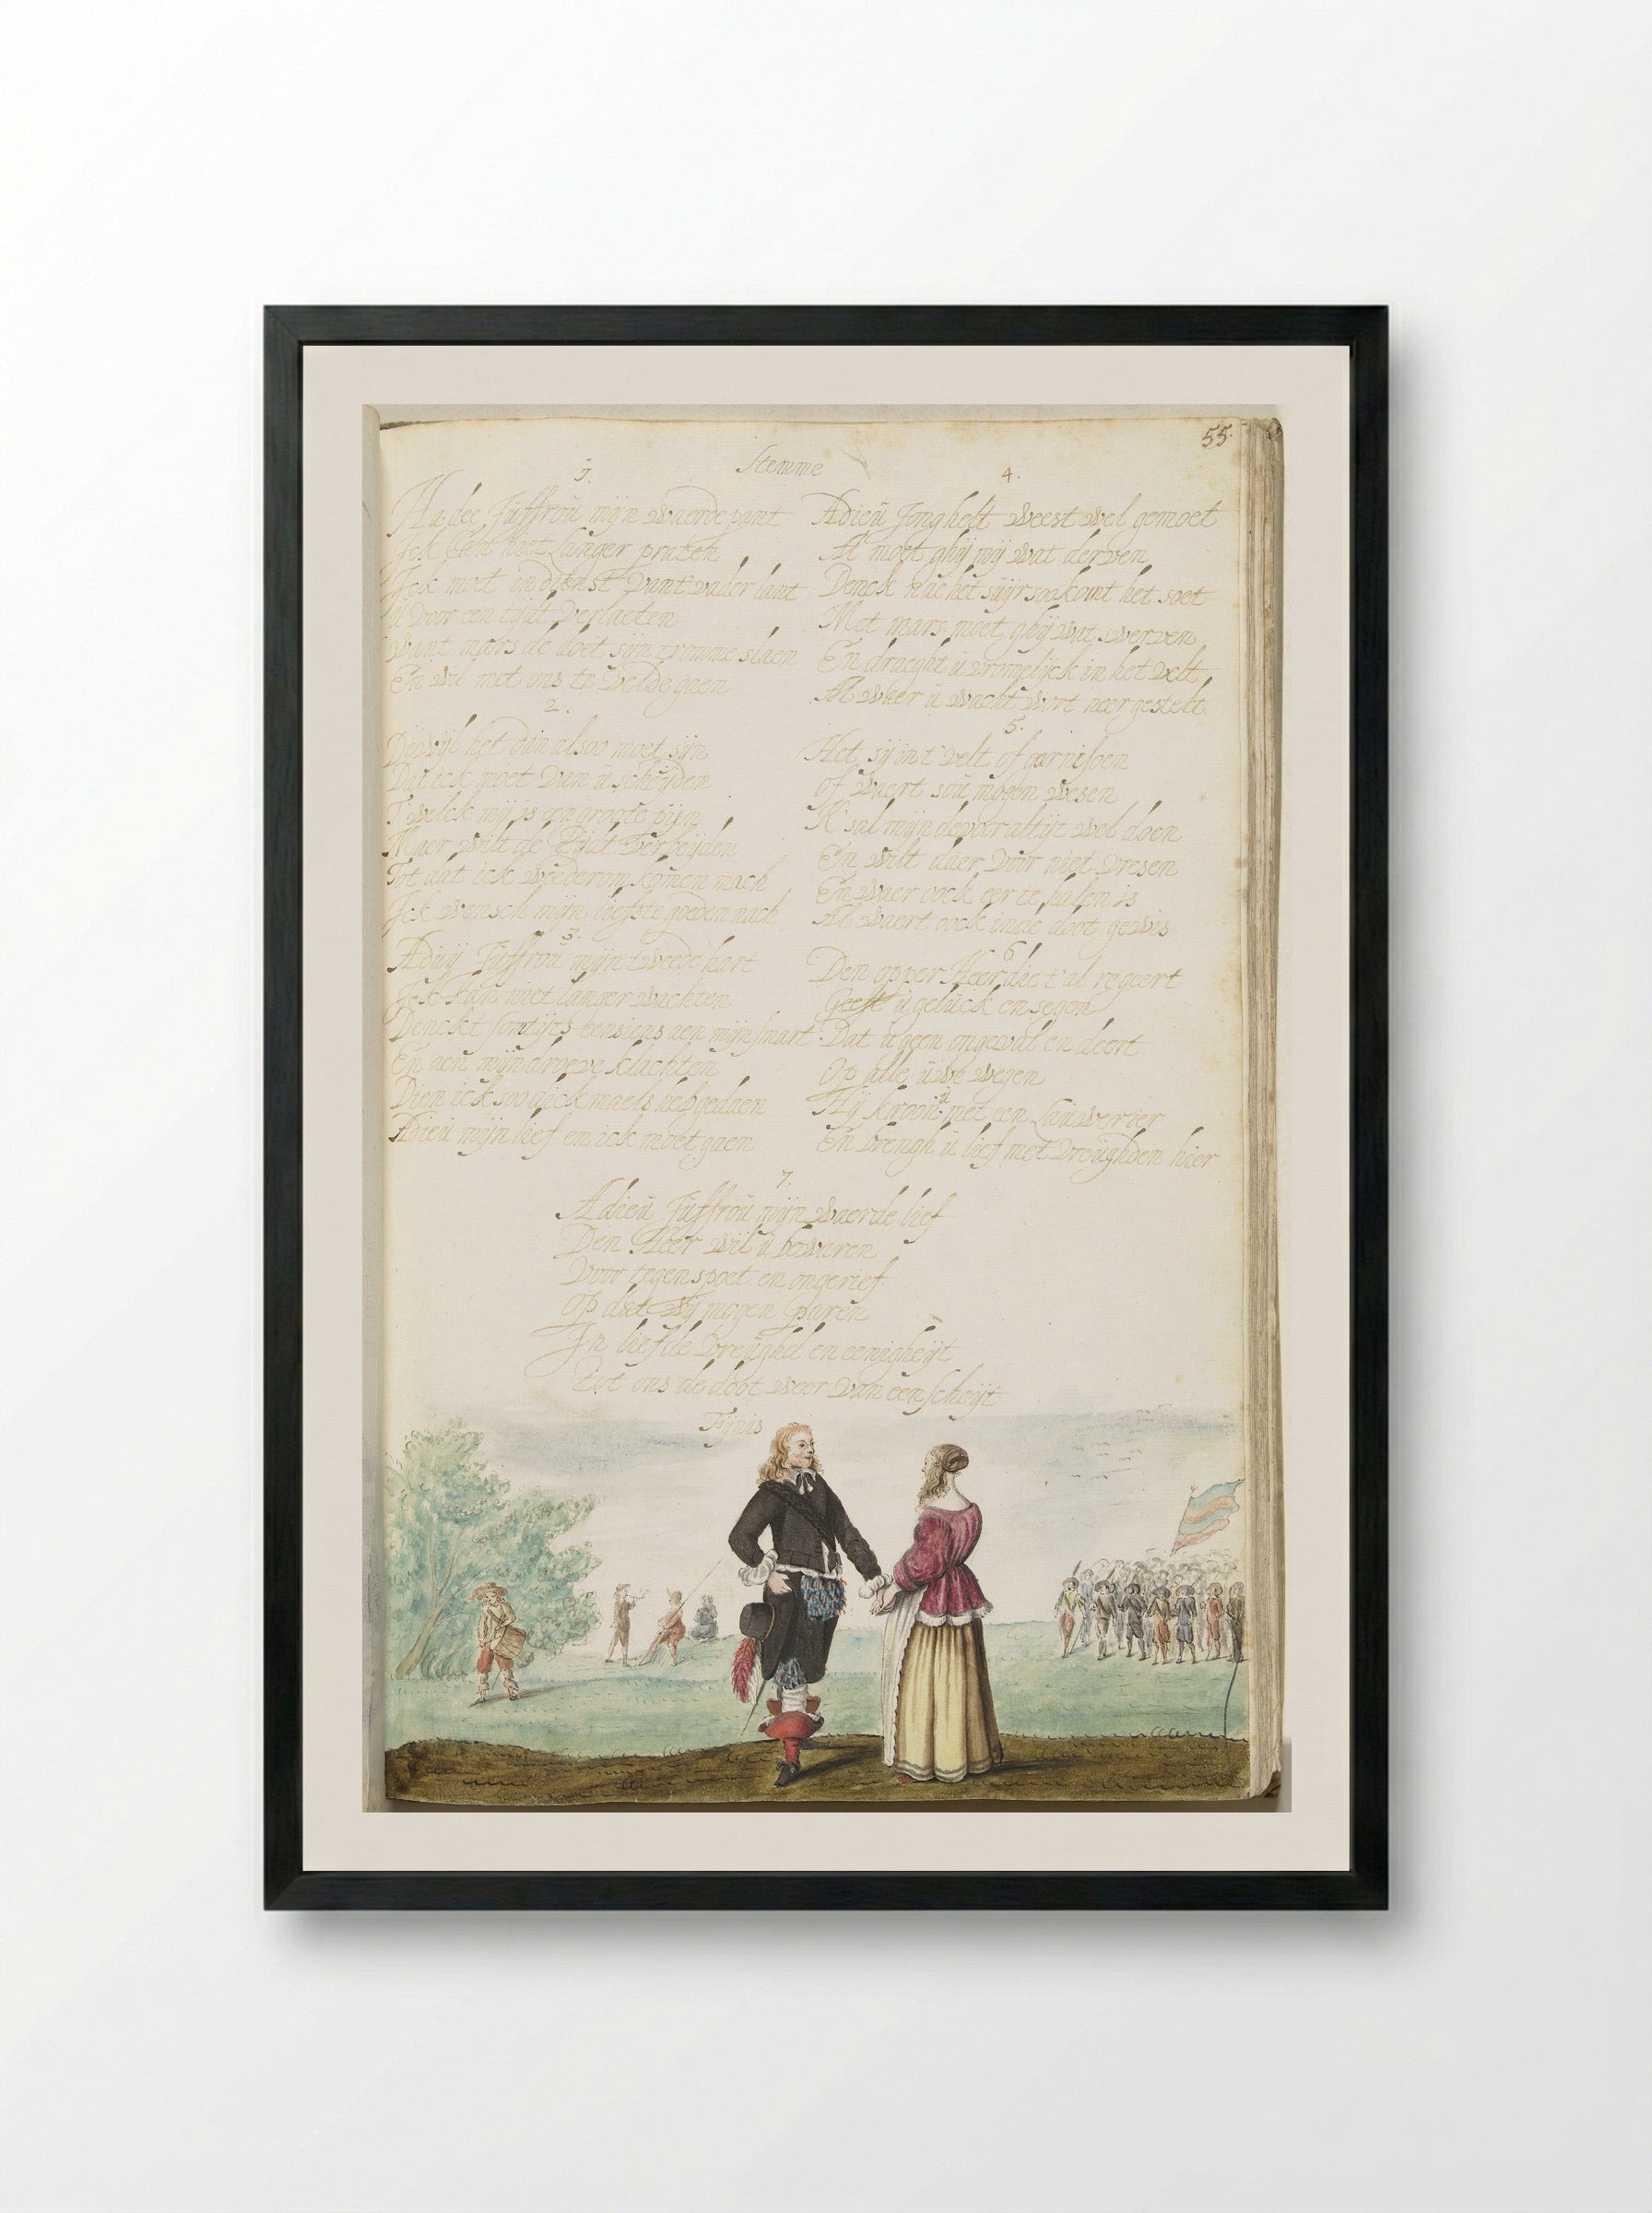 55
Stemme
1.
Ha dee Juffrou mijn waerde pant
Ick niet langer praten
Ick moet in dienst vant vader lant
U voor een tijdt verlaeten
Want mars de doet sijn tromme slaen
En wil met ons te velde gaen
2.
Dewijl het dan alsoo moet sijn
Dat ick moet van u scheijden
T welck mij is een groote pijn
Maer wilt de tijdt verbeijden
Tot dat ick wederom komen mach
Ick wensch mijn liefste goeden nach
3.
Adieu Juffrou mijn tweede hart
Ick kan niet langer wachten
Denckt somtijts eensiens aen mijn smart
En aen mijn droeve klachten
Dien ick soo dickmaels heb gedaen
Adieu mijn lief en ick moet gaen
4.
Adieu Jonghelt weest wel gemoet
Al moet ghij mij wat derven
Denck nae het suijr soo komt het soet
Met mars moet ghij wat swerven
En draeght u vromelijck in het velt
Al waer u wacht wort neer gestelt
5.
Het sij int velt of garnisoen
of waert sou mogen wesen
K sal mijn devoor altijt wel doen
En wilt daer voor niet vresen
En waer oock eer te halen is
Al waert oock inde doot gewis
6
Den opper Heer die t al regeert
Geeft u geluck en segen
Dat u geen ongeval en deert
Op alle uwe wegen
Hij kroon u met een Lauwerier
En brengh u lief met vreughden hier
7.
Adieu Juffrou mijn waerde lief
Den Heer wil u bewaren
Voor tegenspoet en ongerief
Op dat wij mogen paren
In liefde vreughd en eenigheijt
tot ons de doot weer van een scheijt
Fijnis